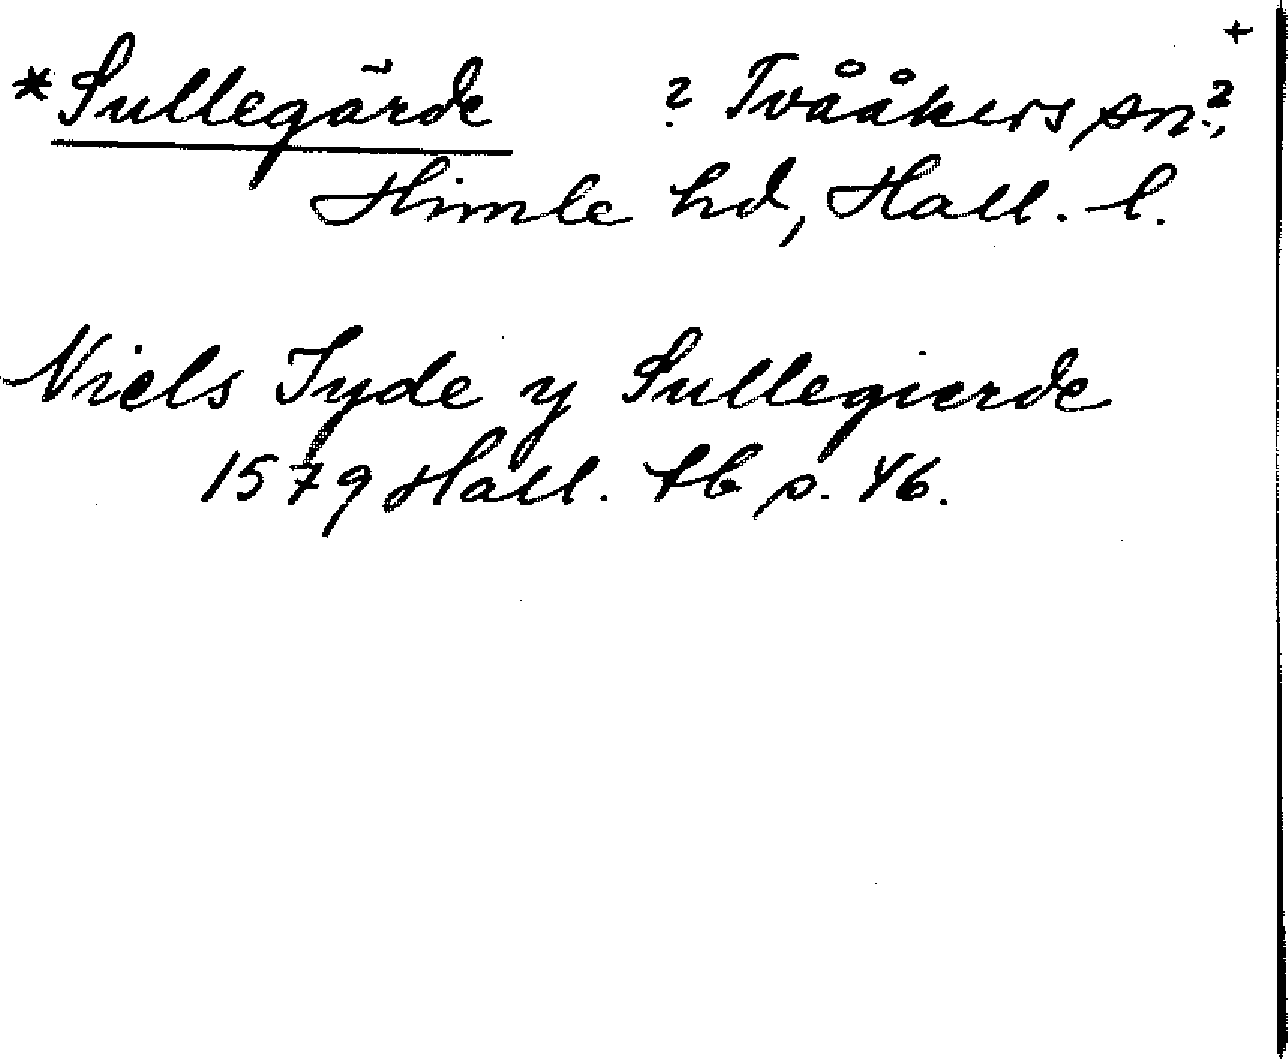 +
*Sullegärde ? Tvååkers sn?,
Himle hd, Hall. l.
Niels Jyde y Sullegierde
1579 Hall. tb s. 46.